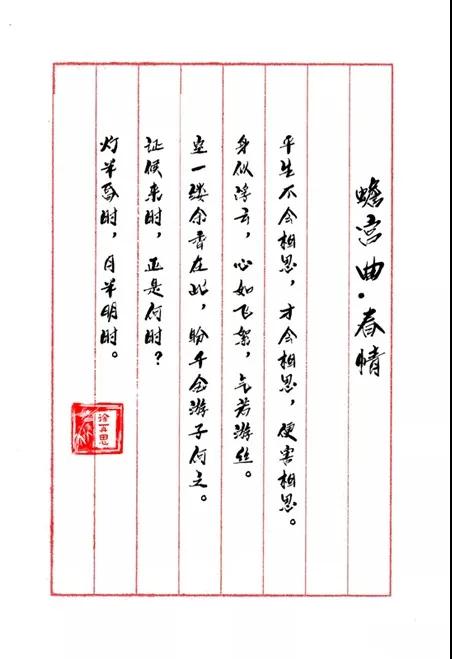 蟾宫曲·春情
平生不会相思，才会相思，便害相思。
身似浮云，心如飞絮，气若游丝。
空一缕余香在此，盼千金游子何之。
证候来时，正是何时？
灯半昏时，月半明时。
徐再思